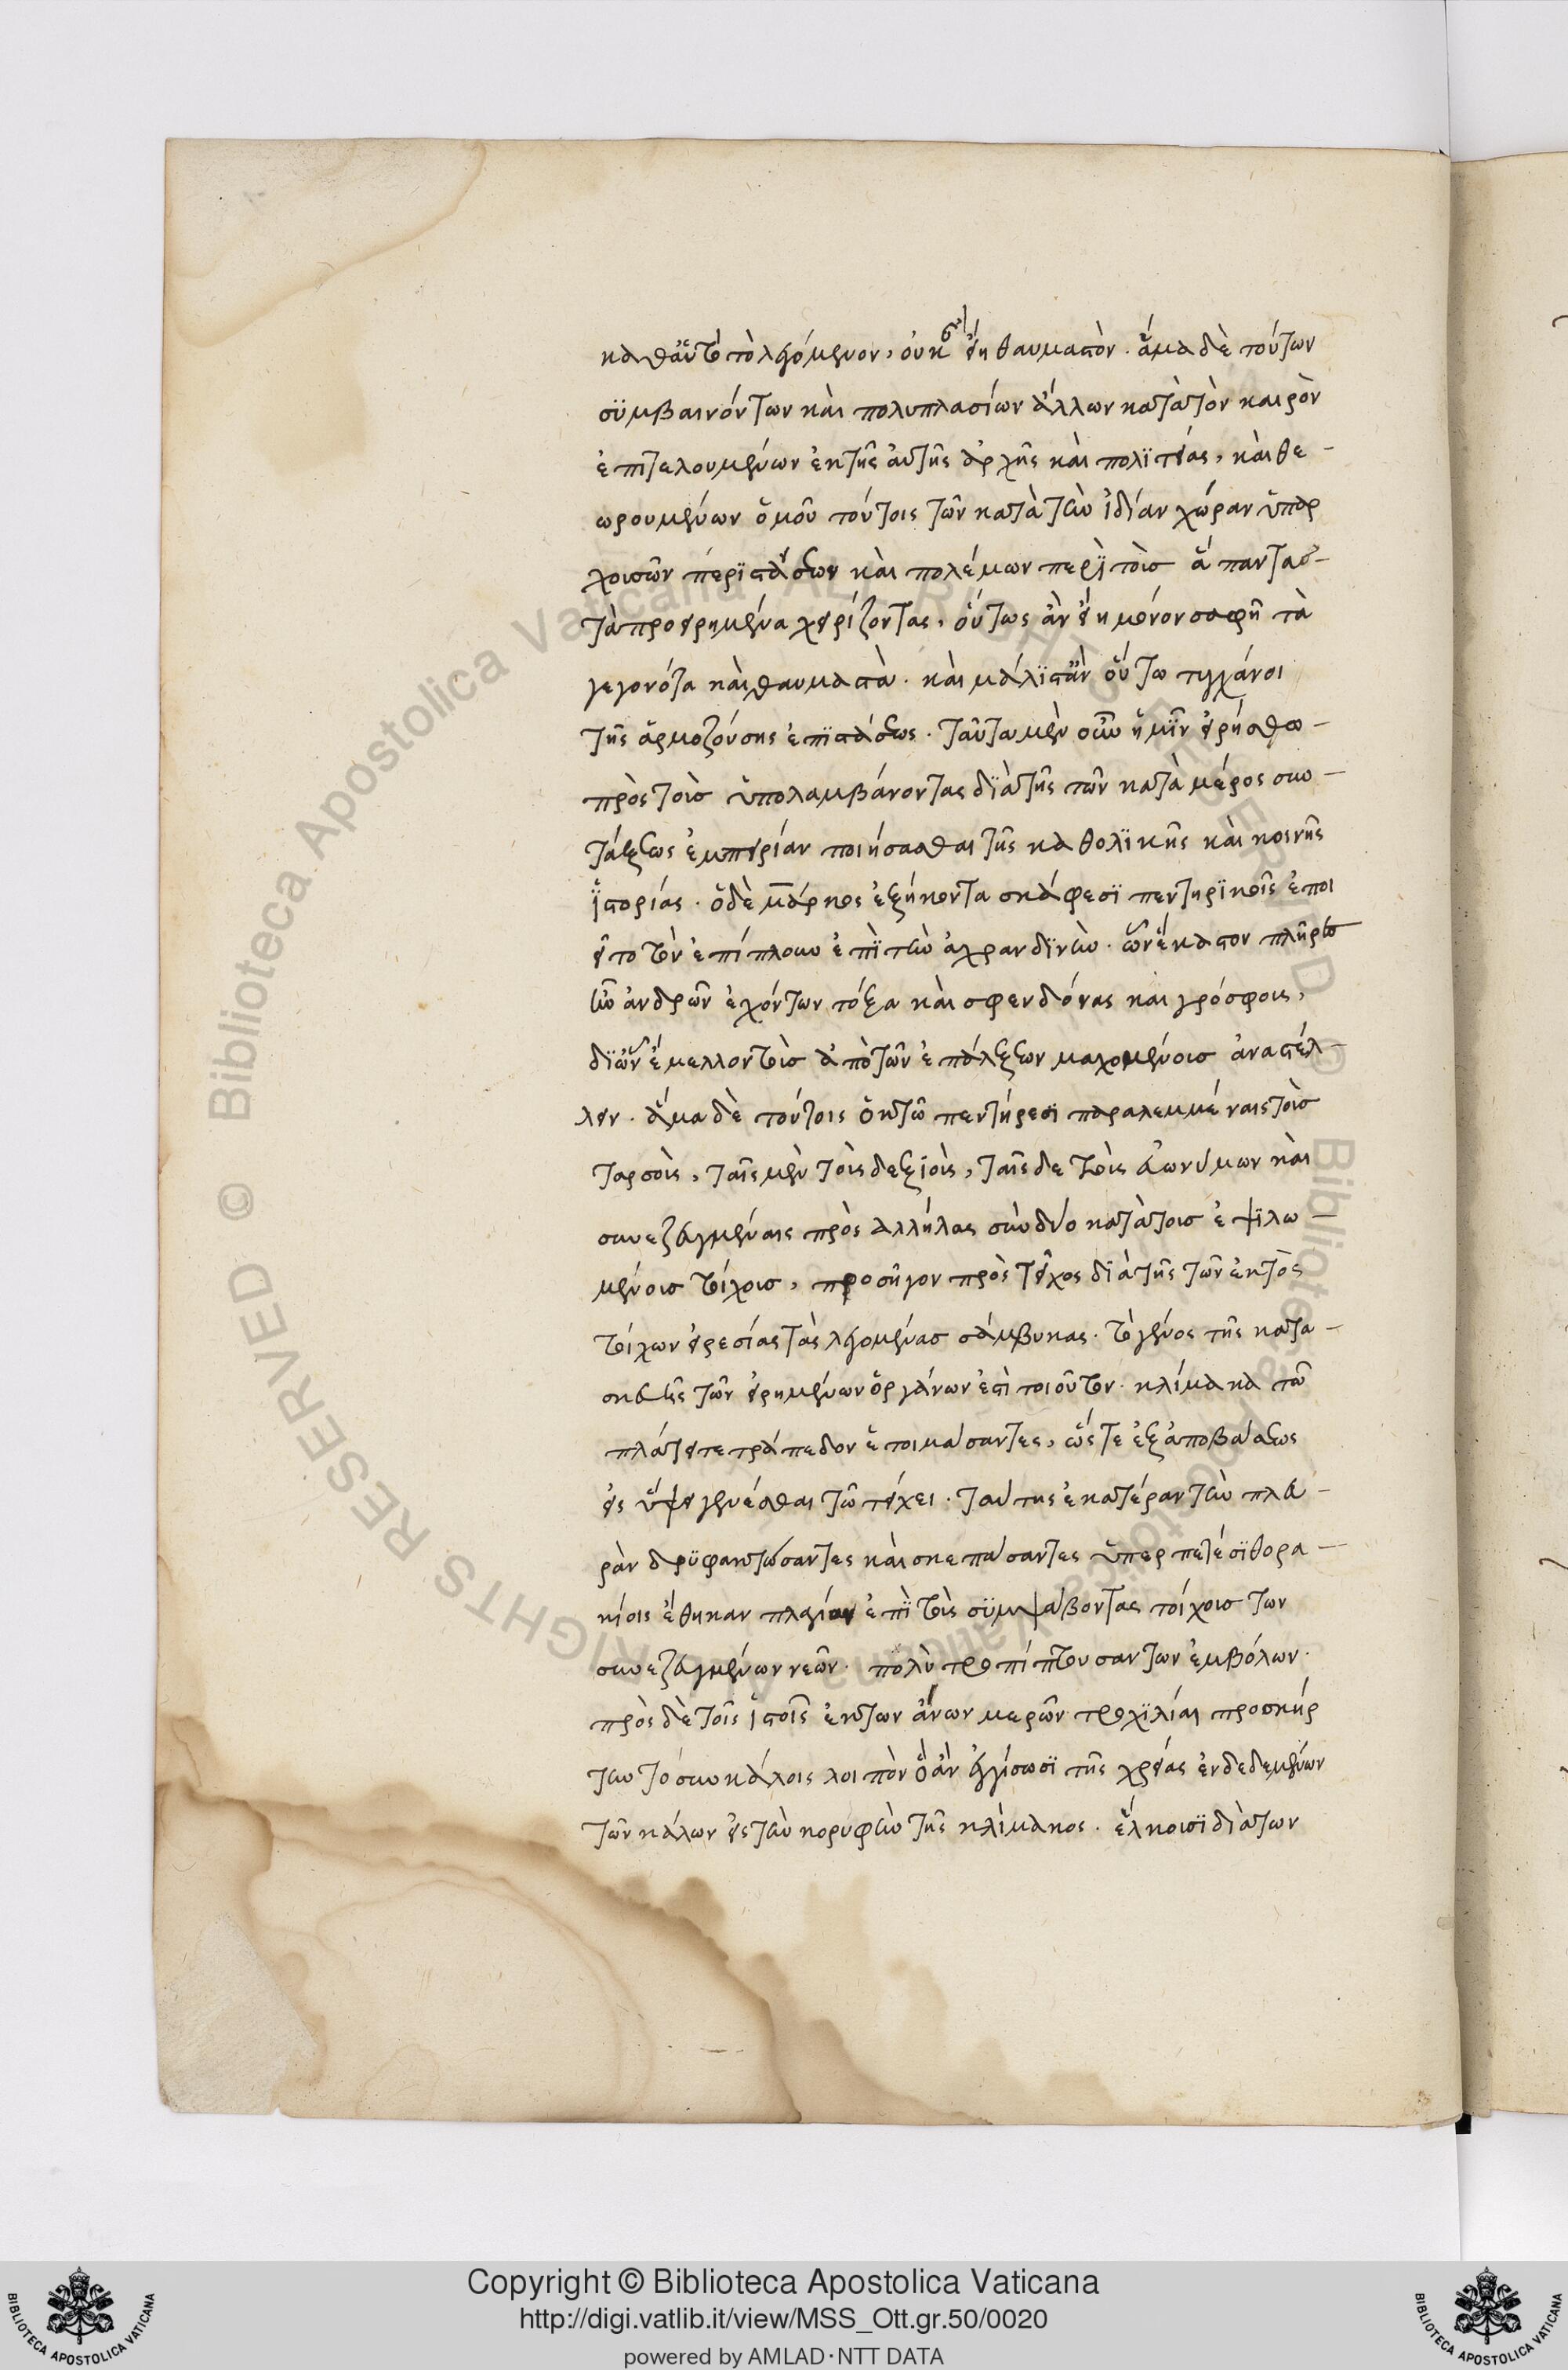 καθ' αὑτὸ τὸ λεγόμενον, οὐκ ἂν εἴη θαυμαστὸν. ἅμα δὲ τούτων
συμβαινόντων καὶ πολυπλασίων ἄλλων κατὰ τὸν καιρὸν
ἐπιτελουμένων ἐκ τῆς αὐτῆς ἀρχῆς καὶ πολιτείας, καὶ θε-
ωρουμένων ὁμοῦ τούτοις τῶν κατὰ τὴν ἰδίαν χώραν ὑπαρ
χουσῶν περιστάσεων καὶ πολέμων περὶ τοὺσ ἅπαντασ-
τὰ προειρημένα χειρίζοντας, οὕτως ἂν εἴη μόνον σαφῆ τὰ
γεγονότα καὶ θαυμαστὰ. καὶ μάλιστ' ἂν οὕτω τυγχάνοι
τῆς ἁρμοζούσης ἐπιστάσεως. ταῦτα μὲν οὖν ἡμῖν εἰρήσθω-
πρὸς τοὺσ ὑπολαμβάνοντας διὰ τῆς τῶν κατὰ μέρος συν-
τάξεως ἐμπειρίαν ποιήσασθαι τῆς καθολικῆς καὶ κοινῆς
ἱστορίας. ὁ δὲ μάρκος ἑξήκοντα σκάφεσι πεντηρικοῖς ἐποι
εῖτο τὸν ἐπίπλουν ἐπὶ τὴν ἀχρανδινὴν. ὧν ἕκαστον πλῆρες
ἦν ἀνδρῶν ἐχόντων τόξα καὶ σφενδόνας καὶ γρόσφους,
δι' ὧν ἔμελλον τοὺσ ἀπὸ τῶν ἐπάλξεων μαχομένουσ ἀναστέλ-
λειν. ἅμα δὲ τούτοις ὀκτὼ πεντήρεσι παραλεμμέναις τοὺσ
ταρσοὺς, ταῖς μὲν τοὺς δεξιοὺς, ταῖς δε τοὺς εὐωνύμων καὶ
συνεζευγμέναις πρὸς ἀλλήλας σὺν δύο κατὰ τουσ ἐψιλω-
μένουσ τοίχουσ, προσῆγον πρὸς τεῖχος διὰ τῆς τῶν ἐκτὸς
τοίχων εἰρεσίας τὰς λεγομένασ σάμβυκας. τὸ γένος τῆς κατα-
σκευῆς τῶν εἰρημένων ὀργάνων ἐστὶ τοιοῦτον. κλίμακα τῶ
πλάτει τετράπεδον ἑτοιμάσαντες, ὥστε ἐξ ἀποβάσεως
εἰς ὕψει γενέσθαι τῶ τείχει. ταύτης ἑκατέραν τὴν πλευ-
ρὰν δρυφακτώσαντες καὶ σκεπάσαντες ὑπερπετέσι θορα-
κίοις ἔθηκαν πλαγίαν ἐπὶ τοὺς συμψάβοντας τοίχουσ των
συνεζευγμένων νεῶν. πολὺ προπίπτουσαν τῶν ἐμβόλων.
πρὸς δὲ τοῖς ἱστοῖς ἐκ των ἄνων μερῶν τροχιλίαι προσήρ
την το σὺν κάλοις λοιπὸν ὅταν ἐγγίσωσι τῆς χρείας ἐνδεδεμένων
τῶν κάλων εἰς τὴν κορυφὴν τῆς κλίμακος. ἕλκουσι διὰ των